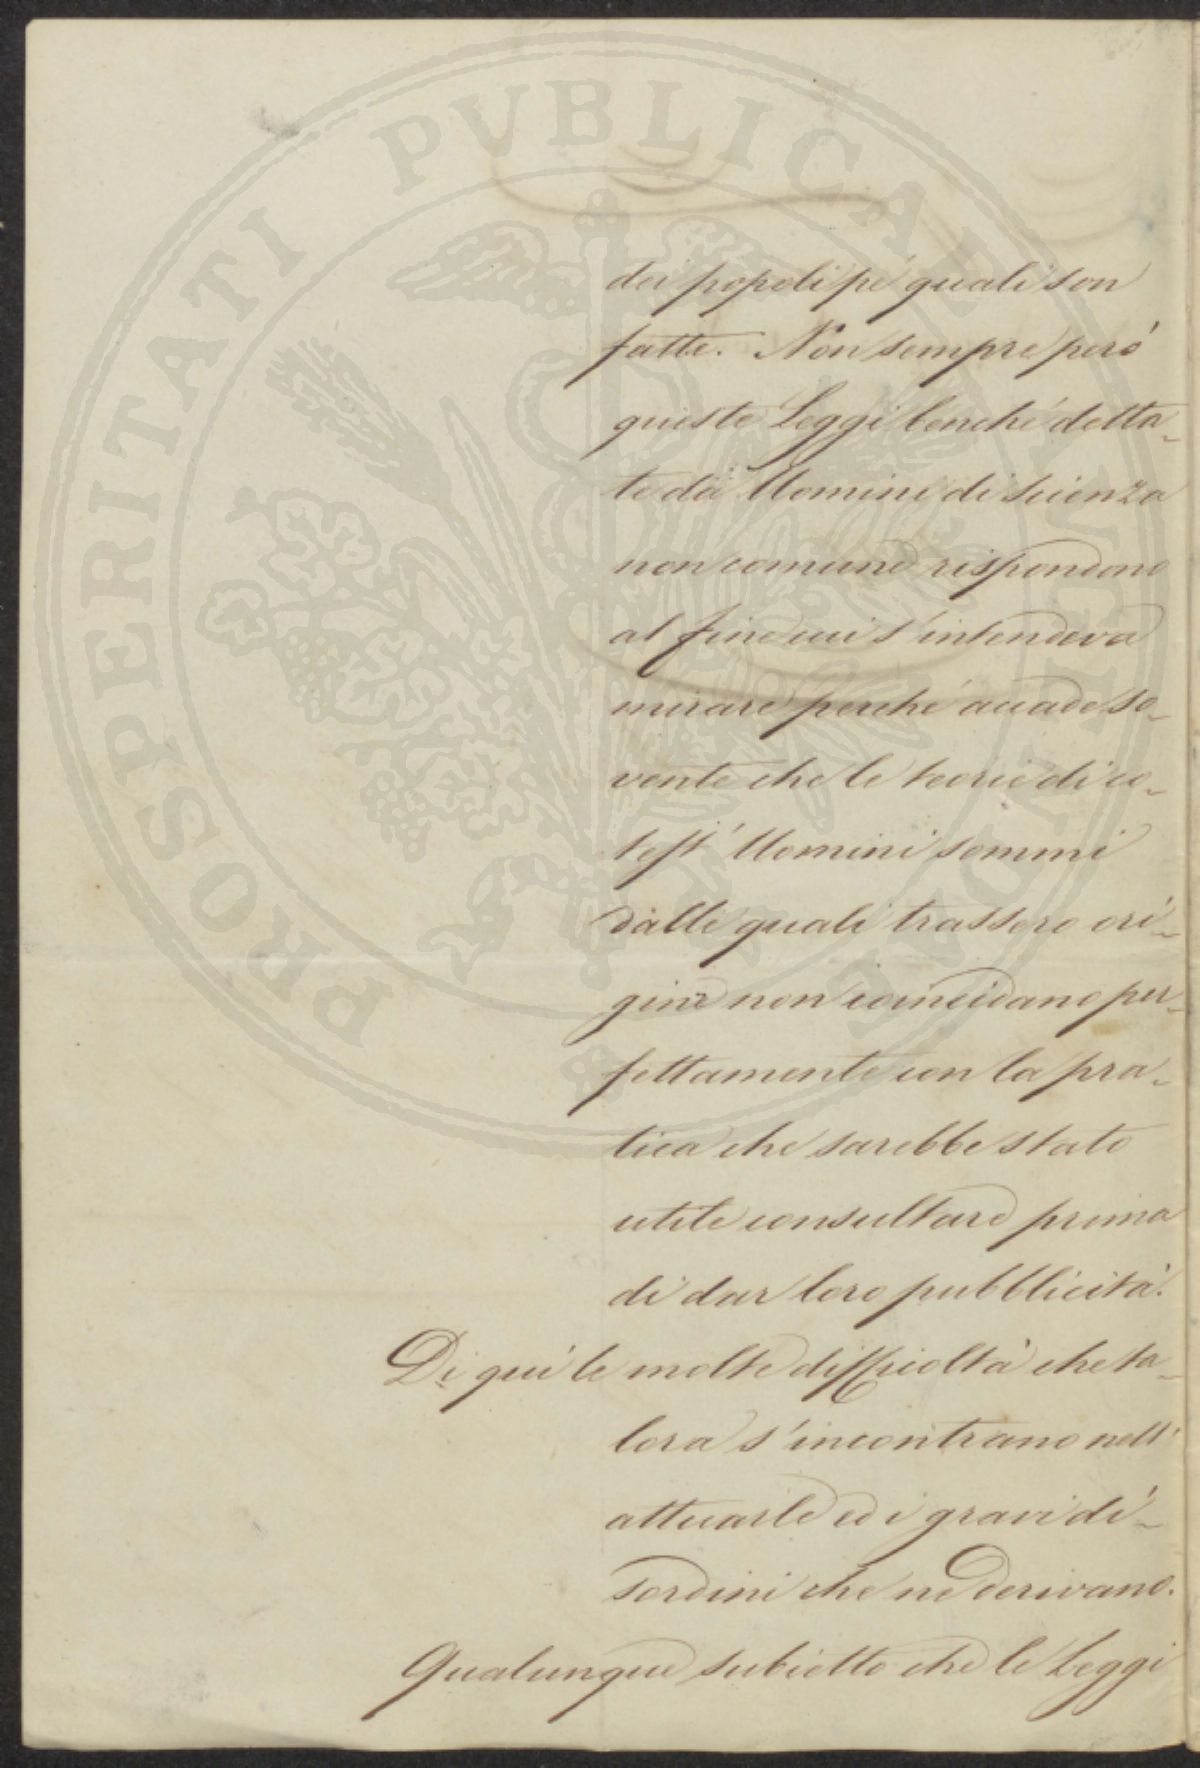 PROSPERITATI PVBLICAE AVGENDAE
dei popoli pe' quali son
fatte. Non sempre però
queste Leggi benché detta-
te da Uomini di scienza
non comune rispondono
al fine cui s'intendeva
mirare perché accade so-
vente che le teorie di co-
test' Uomini sommi
dalle quali trassero ori-
gine non coincidano per-
fettamente con la pra-
tica che sarebbe stato
utile consultare prima
di dar loro pubblicità.
Di qui le molte difficoltà che ta-
lora s'incontrano nell'
attuarle ed i gravi di-
sordini che ne derivano.
Qualunque subietto che le Leggi